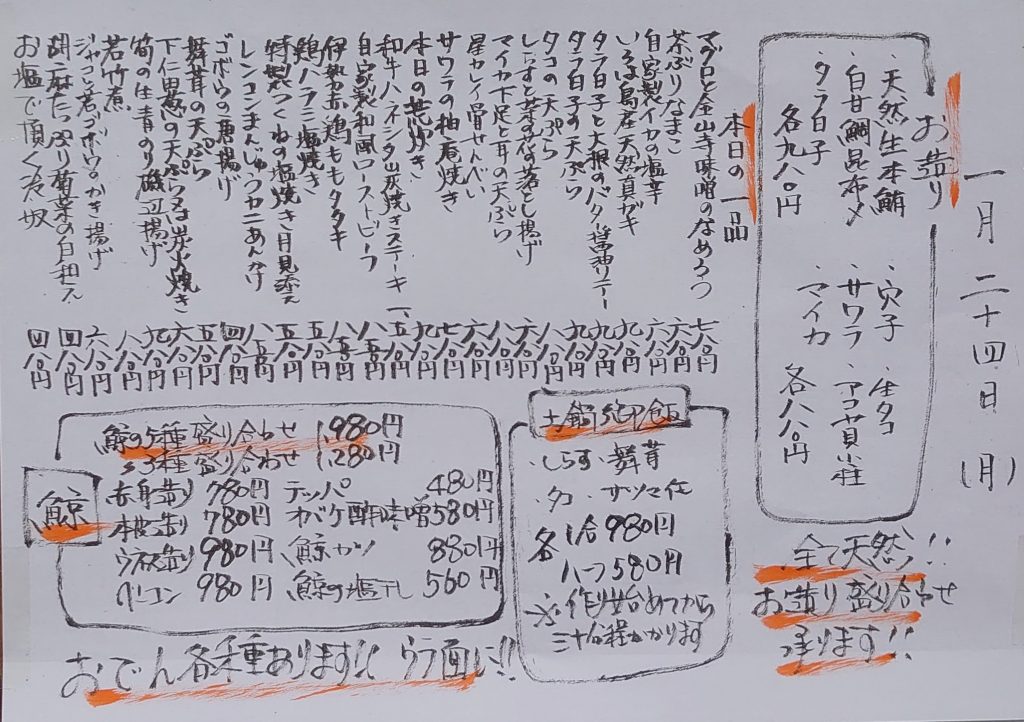 一月二十四日(月)
お造り
・天然生本鮪
・白甘鯛昆布〆
・タラ白子
各九八〇円
・穴子 ・生タコ
・サワラ ・アコヤ貝小柱
・マイカ
各八八〇円
全て天然!!
お造り盛り合わせ
承ります!!
本日の一品
マグロと金山寺味噌のなめろう 七八〇円
茶ぶりなまこ 六八〇円
自家製イカの塩辛 六八〇円
いろは島産天然真ガキ 九八〇円
タラ白子と大根のバター醤油ソテー 九八〇円
タラ白子の天ぷら 九八〇円
タコの天ぷら 八八〇円
しらすと菜の花の落とし揚げ 六八〇円
マイカ下足と耳の天ぷら 八八〇円
星カレイ骨せんべい 六八〇円
サワラの柚庵焼き 七八〇円
本日の荒炊き 九八〇円
和牛ハネシタ炭焼きステーキ 一、五八〇円
自家製和風ローストビーフ 八八〇円
伊勢赤鶏ももタタキ 八五〇円
鶏ハラミ塩焼き 五八〇円
特製つくねの塩焼き月見添え 五五〇円
レンコンまんじゅうカニあんかけ 八五〇円
ゴボウの唐揚げ 四八〇円
舞茸の天ぷら 五八〇円
下仁田葱の天ぷら又は炭火焼き 六八〇円
筍の生青のり磯辺揚げ 九八〇円
若竹煮 八八〇円
ジャコと若ゴボウのかき揚げ 六八〇円
胡麻たっぷり菊菜の白和え 四八〇円
お塩で頂く冷奴 四八〇円
土鍋御飯
・しらす ・舞茸
・タコ ・サツマ芋
各 1合 980円
ハーフ 580円
※作り始めてから
三十分程かかります
鯨
鯨の5種盛り合わせ 1,980円
〃3種盛り合わせ 1,280円
赤身造り 780円
本皮造り 780円
ウネ造り 980円
ベーコン 980円
テッパ 480円
オバケ酢味噌 580円
鯨カツ 880円
鯨の塩干し 560円
おでん各種あります!! ウラ面に!!